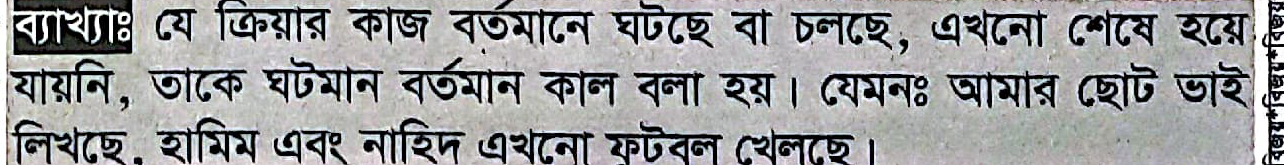 ব্যাখ্যাঃ যে ক্রিয়ার কাজ বর্তমানে ঘটছে বা চলছে, এখনো শেষে হয়ে
যায়নি, তাকে ঘটমান বর্তমান কাল বলা হয়। যেমনঃ আমার ছোট ভাই
লিখছে, হামিম এবং নাহিদ এখনো ফুটবল খেলছে।